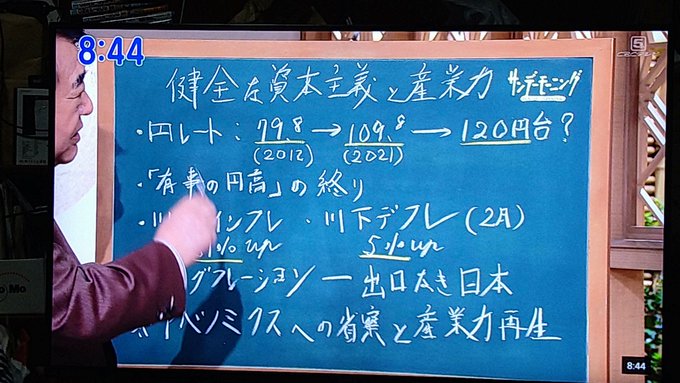 8:44
健全な資本主義と産業力
サンデーモーニング
・円レート：79.8→109.8→120円台？
(2012) (2021)
・「有事の円高」の終り
インフレ・川下デフレ(2月)
%up 5%up
グフレーション―出口なき日本
ベノミクスへの省察と産業力再生
8:44